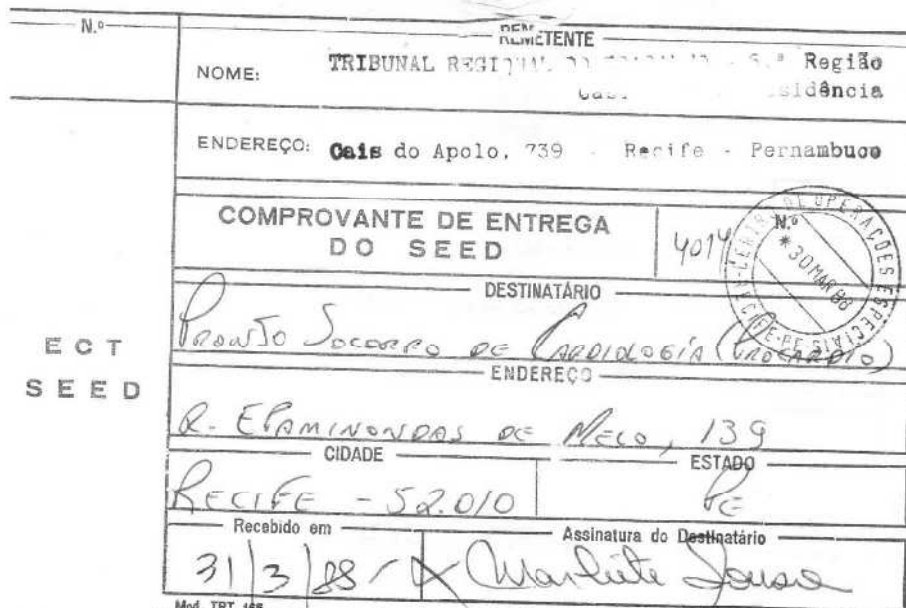 N.º
REMETENTE
NOME: TRIBUNAL REGIONAL Região
ENDEREÇO: Cais do Apolo, 739 - Recife - Pernambuco
COMPROVANTE DE ENTREGA
DO SEED
4014
N.º
CENTRO DE OPERAÇÕES ESPECIAIS
RECIFE-PE
*30 MAR 88
DESTINATÁRIO
PRONTO SOCORRO DE CARDIOLOGÍA (PROCARDIO)
ECT
SEED
ENDEREÇO
R. EPAMINONDAS DE MELO, 139
CIDADE
ESTADO
RECIFE - 52.010
PE
Recebido em
Assinatura do Destinatário
31/3/88
Marluite Sousa
Mod. TRT 165